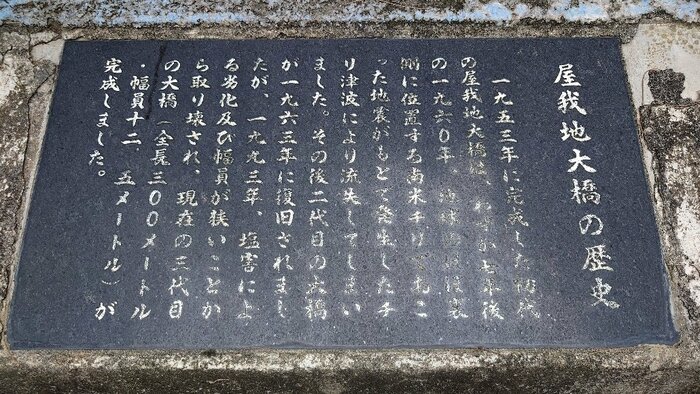 屋我地大橋の歴史
一九五三年に完成した初代
の屋我地大橋は、わずか七年後
の一九六0年、地球の裏
側に位置する南米チリでおこ
った地震がもとで発生したチ
リ津波により流失してしまい
ました。その後二代目の大橋
が一九六三年に復旧されまし
たが、一九九三年、塩害によ
る劣化及び幅員が狭いことか
ら取り壊され、現在の三代目
の大橋(全長三00メートル
・幅員十二．五メートル)が
完成しました。